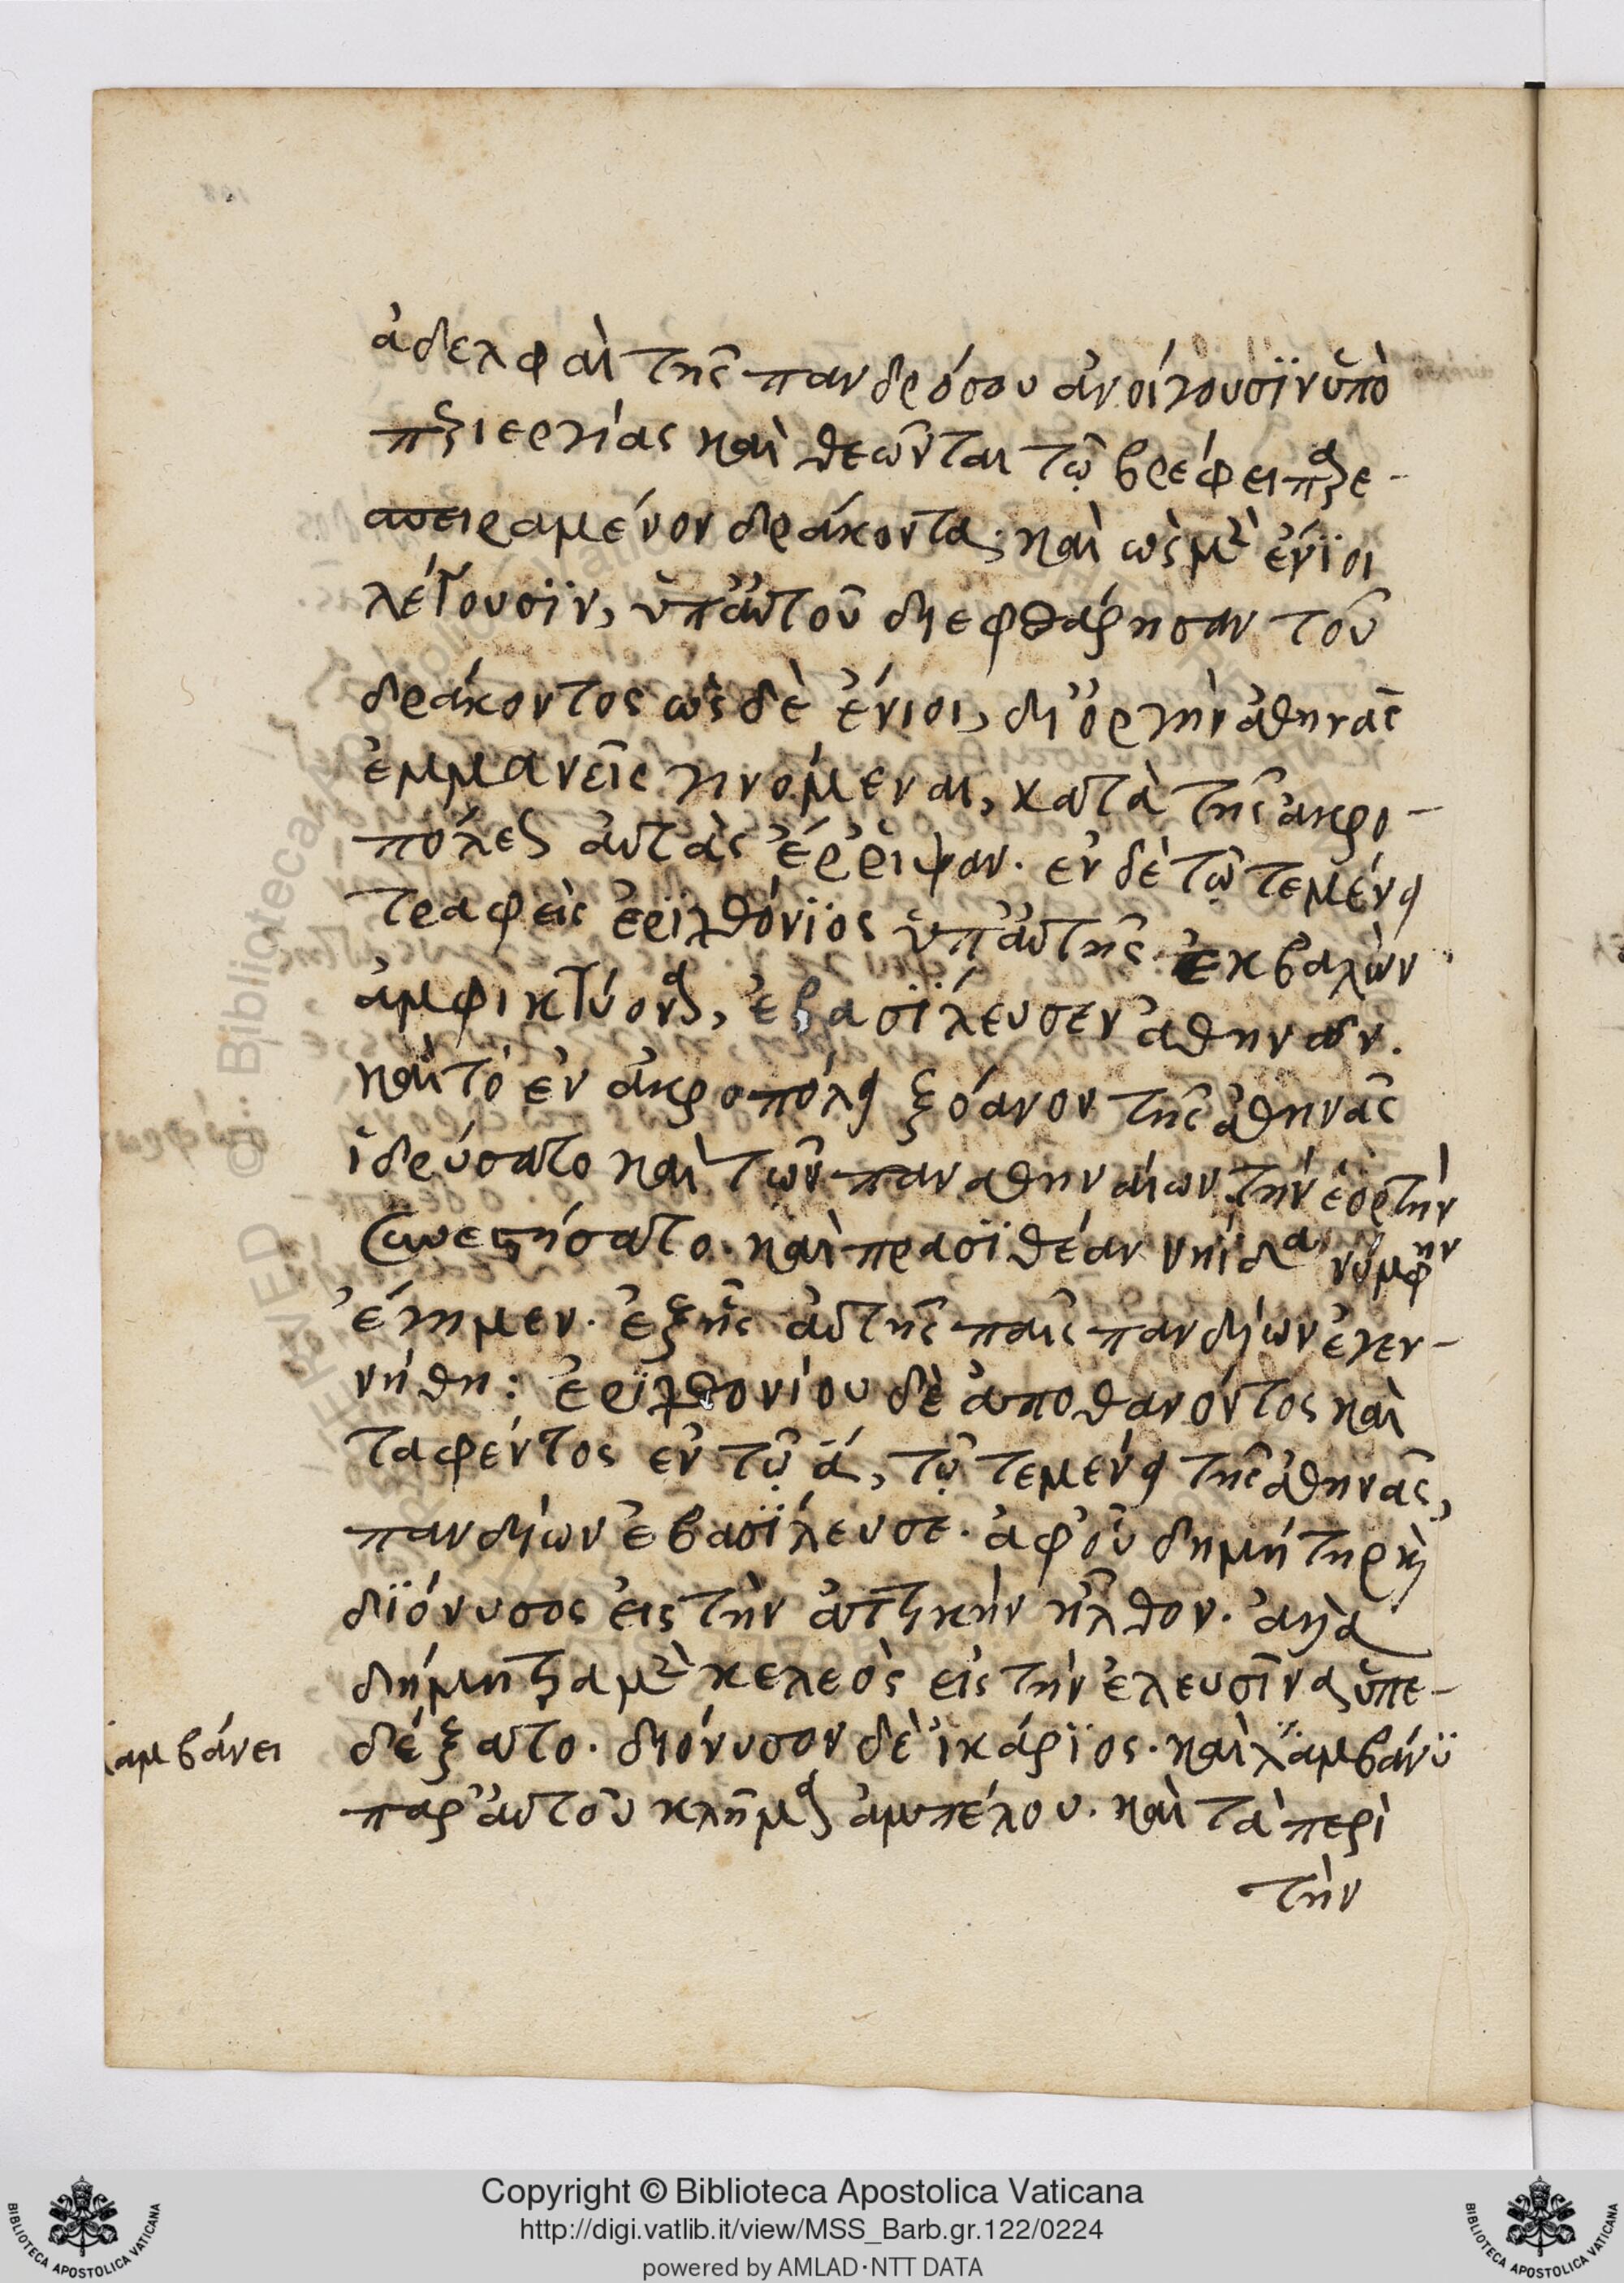 ἀδελφαὶ τῆς πανδρόσου ἀνοίγουσϊν ὑπὸ
περιεργίας καὶ θεῶνται τῷ βρέφει παρε-
σπειραμένον δράκοντα· καὶ ὡς μὲν ἔνϊοι
λέγουσϊν, ὑπ' αὐτοῦ διεφθάρησαν τοῦ
δράκοντος ὡς δὲ ἔνιοι, δι' ὀργὴν ἀθηνᾶς
ἐμμανεῖς γινόμεναι, κατὰ τῆς ἀκρο-
πόλεως αὐτὰς ἔρριψαν. ἐν δὲ τῷ τεμένει
τραφεὶς ἐρϊχθόνϊος ὑπ' αὐτῆς. ἐκβαλὼν
ἀμφικτύονα, ἐβασϊλευσεν ἀθηνῶν.
καὶ τὸ ἐν ἀκροπόλει ξόανον τῆς ἀθηνᾶς
ἱδρύσατο καὶ τῶν παναθηναίων τὴν ἑορτὴν
συνεστήσατο. καὶ πρασϊθέαν νηίδα νύμφην
ἔγημεν. ἐξ ἧς αὐτῆς παῖς πανδίων ἐγεν-
νήθη: ἐρϊχθονίου δὲ ἀποθανόντος καὶ
ταφέντος ἐν τῷ ἀ, τῷ τεμένει τῆς ἀθηνᾶς,
πανδίων ἐβασϊλευσε. ἀφ' οὗ δημήτηρ καὶ
δϊόνυσος εἰς τὴν ἀττικὴν ἦλθον. ἀλλὰ
δήμητρα μὲν κελεὸς εἰς τὴν ἐλευσῖνα ὑπε-
δέξατο. διόνυσον δὲ ἰκάρϊος. καὶ λαμβάνϋ
παρ' αὐτοῦ κλῆμα ἀμπέλου. καὶ τὰ περὶ
τὴν
λαμβάνει
Copyright © Biblioteca Apostolica Vaticana
http://digi.vatlib.it/view/MSS_Barb.gr.122/0224
powered by AMLAD·NTT DATA
BIBLIOTECA APOSTOLICA VATICANA
BIBLIOTECA APOSTOLICA VATICANA